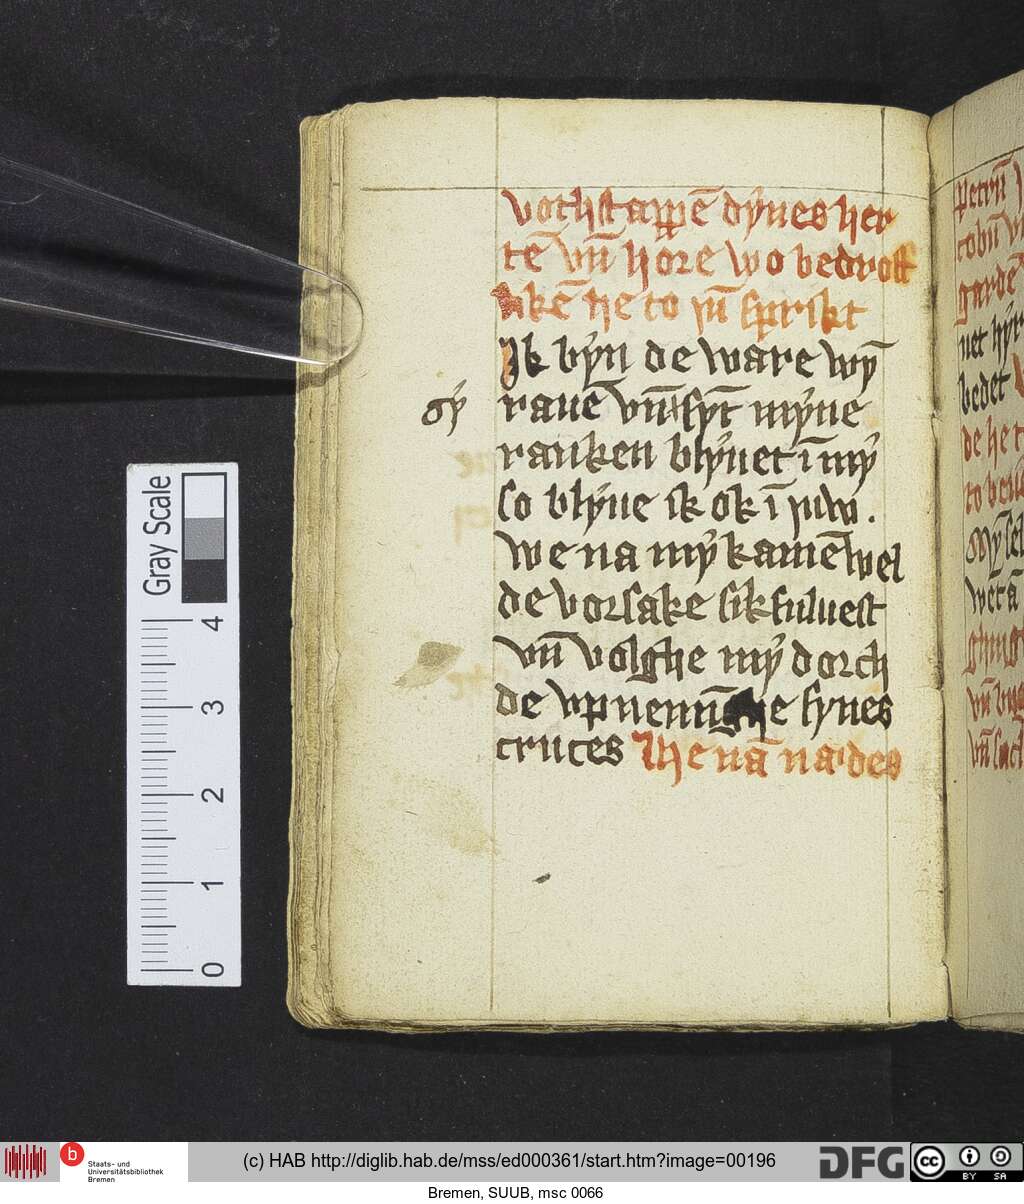 vothstappē dynes her
tē vn̄ hore wo bedroff
likē he to iū sprikt
Ik byn de ware wyn̄
gy
raue vn̄ syt myne
ranken blyuet ī my
so blyue ik ok ī iuw.
we na my kamē wel
de vorsake sik suluest
vn̄ volghe my dorch
de vpnemīghe synes
cruces The nā na des
petrū
garde
net hyr
bedet
de he t
vn̄
Gray Scale
4
3
2
1
0
b Staats- und
Universitätsbibliothek
Bremen
(c) HAB http://diglib.hab.de/mss/ed000361/start.htm?image=00196
DFG
cc BY SA
Bremen, SUUB, msc 0066